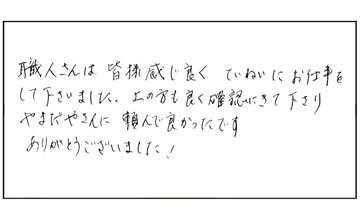 職人さんは 皆様感じ良く ていねいにお仕事を
して下さいました。上の方も良く確認にきて下さり
やまだやさんに 頼んで良かったです
ありがとうございました!